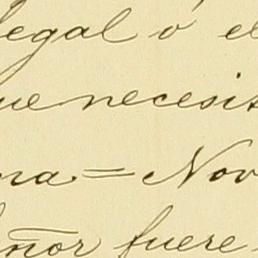 legal o el
ue necesi
na = Nov
eñor fuere